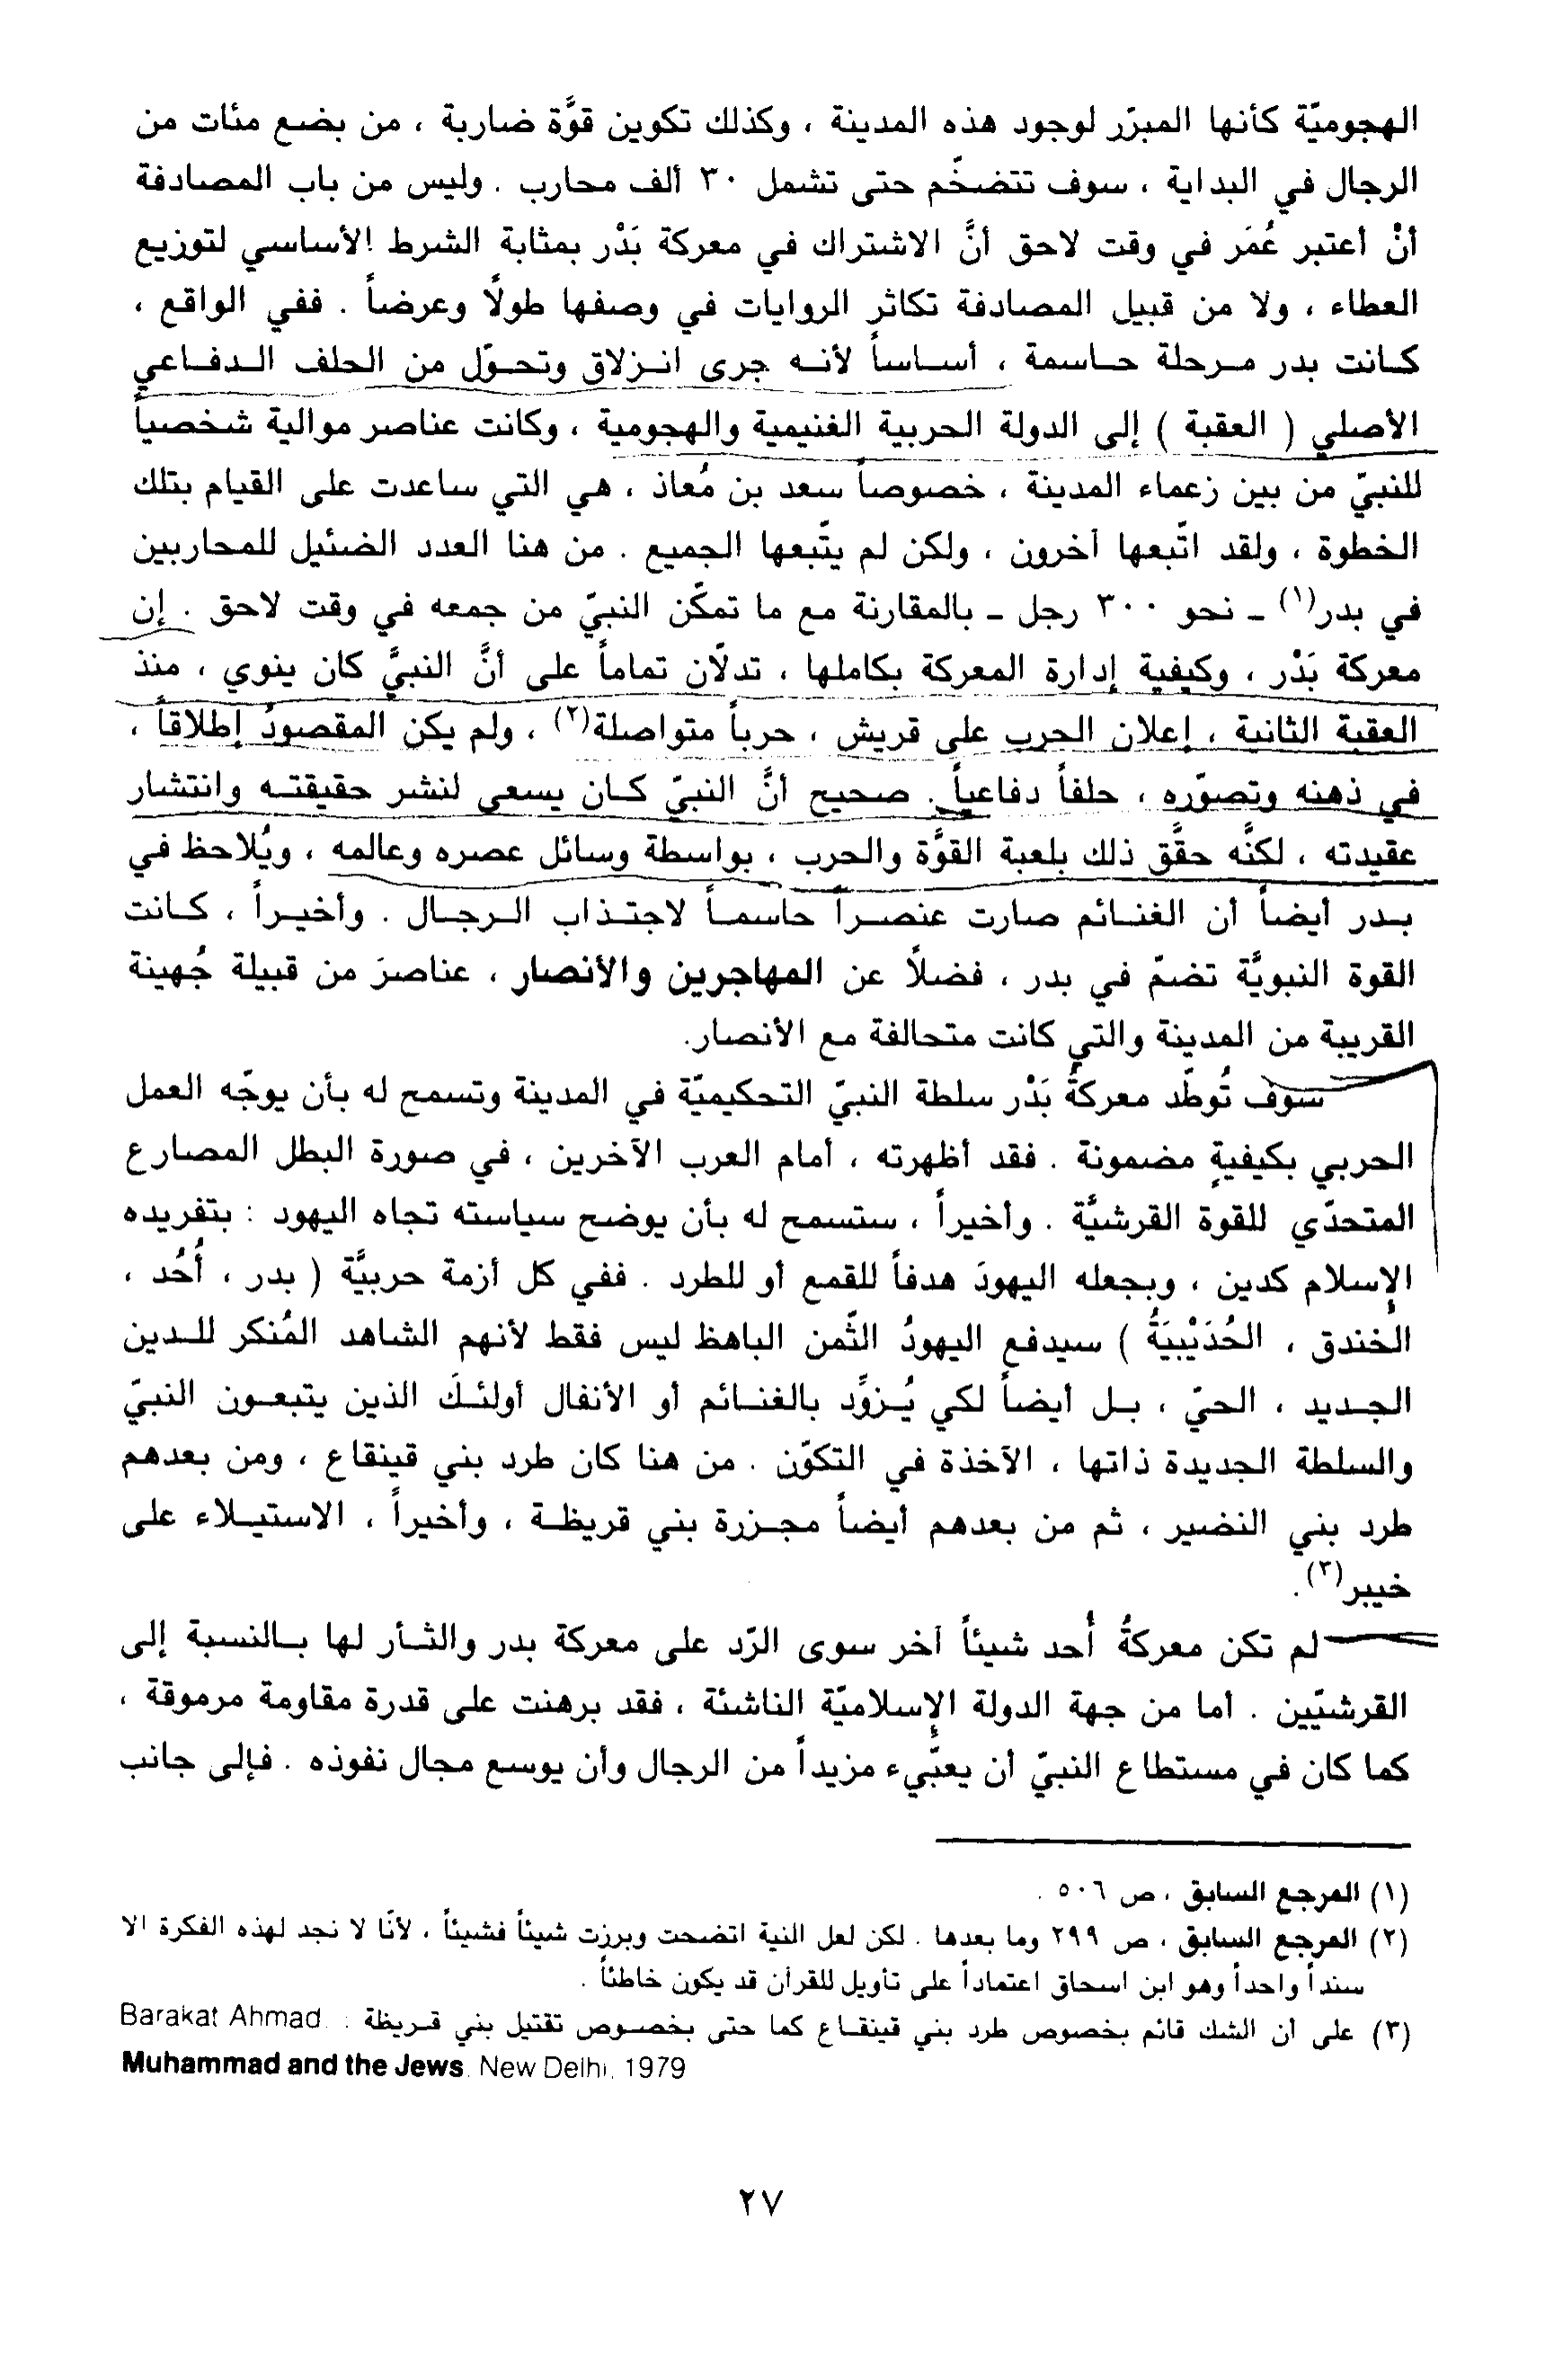 الهجوميّة كأنها المبرّر لوجود هذه المدينة ، وكذلك تكوين قوَّة ضاربة ، من بضع مئات من
الرجال في البداية ، سوف تتضخّم حتى تشمل ٣٠ ألف محارب . وليس من باب المصادفة
أنْ أعتبر عُمَر في وقت لاحق أنَّ الاشتراك في معركة بَدْر بمثابة الشرط الأساسي لتوزيع
العطاء ، ولا من قبيل المصادفة تكاثر الروايات في وصفها طولًا وعرضاً . ففي الواقع ،
كانت بدر مرحلة حاسمة ، أساساً لأنه جرى انزلاق وتحوّل من الحلف الدفاعي
الأصلي ( العقبة ) إلى الدولة الحربية الغنيمية والهجومية ، وكانت عناصر موالية شخصياً
للنبيّ من بين زعماء المدينة ، خصوصاً سعد بن مُعاذ ، هي التي ساعدت على القيام بتلك
الخطوة ، ولقد اتّبعها أخرون ، ولكن لم يتّبعها الجميع . من هنا العدد الضئيل للمحاربين
في بدر(١) ـ نحو ٣٠٠ رجل ـ بالمقارنة مع ما تمكّن النبيّ من جمعه في وقت لاحق . إن
معركة بَدْر ، وكيفية إدارة المعركة بكاملها ، تدلّان تماماً على أنَّ النبيَّ كان ينوي ، منذ
العقبة الثانية ، إعلان الحرب على قريش ، حرباً متواصلة(٢) ، ولم يكن المقصودُ إطلاقاً ،
في ذهنه وتصوّره ، حلفاً دفاعياً . صحيح أنَّ النبيّ كان يسعى لنشر حقيقته وانتشار
عقيدته ، لكنَّه حقَّق ذلك بلعبة القوَّة والحرب ، بواسطة وسائل عصره وعالمه ، ويُلاحظ في
بدر أيضاً أن الغنائم صارت عنصراً حاسماً لاجتذاب الرجال . وأخيراً ، كانت
القوة النبويَّة تضمّ في بدر ، فضلاً عن المهاجرين والأنصار ، عناصرَ من قبيلة جُهينة
القريبة من المدينة والتي كانت متحالفة مع الأنصار.
سوف تُوطِّد معركةُ بَدْر سلطة النبيّ التحكيميّة في المدينة وتسمح له بأن يوجّه العمل
الحربي بكيفيةٍ مضمونة . فقد أظهرته ، أمام العرب الآخرين ، في صورة البطل المصارع
المتحدّي للقوة القرشيَّة . وأخيراً ، ستسمح له بأن يوضح سياسته تجاه اليهود : بتفريده
الإسلام كدين ، وبجعله اليهودَ هدفاً للقمع أو للطرد . ففي كل أزمة حربيَّة ( بدر ، أُحُد ،
الخندق ، الحُدَيْبيَةُ ) سيدفع اليهودُ الثّمن الباهظ ليس فقط لأنهم الشاهد المُنكر للدين
الجديد ، الحيّ ، بل أيضاً لكي يُزوِّد بالغنائم أو الأنفال أولئكَ الذين يتبعون النبيّ
والسلطة الجديدة ذاتها ، الآخذة في التكوّن . من هنا كان طرد بني قينقاع ، ومن بعدهم
طرد بني النضير ، ثم من بعدهم أيضاً مجزرة بني قريظة ، وأخيراً ، الاستيلاء على
خيبر(٣) .
لم تكن معركةُ أُحد شيئاً آخر سوى الرّد على معركة بدر والثأر لها بالنسبة إلى
القرشيّين . أما من جهة الدولة الإسلاميّة الناشئة ، فقد برهنت على قدرة مقاومة مرموقة ،
كما كان في مستطاع النبيّ أن يعبّيء مزيداً من الرجال وأن يوسع مجال نفوذه . فإلى جانب
(١) المرجع السابق ، ص ٥٠٦ .
(٢) المرجع السابق ، ص ٢٩٩ وما بعدها . لكن لعل النية اتضحت وبرزت شيئاً فشيئاً ، لأنّا لا نجد لهذه الفكرة الا
سنداً واحداً وهو ابن اسحاق اعتماداً على تأويل للقرآن قد يكون خاطئاً .
(٣) على أن الشك قائم بخصوص طرد بني قينقاع كما حتى بخصوص تقتيل بني قريظة : Barakat Ahmad
Muhammad and the Jews. New Delhi, 1979
٢٧